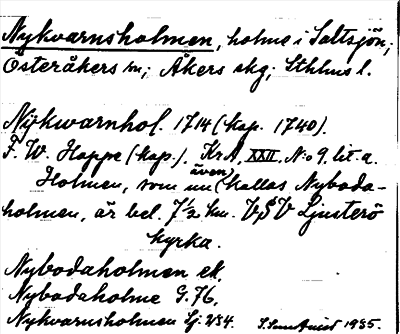 Nykvarnsholmen, holme i Saltsjön;
Österåkers sn; Åkers skg; Sthlms l.
Nÿkwarnhol. 1714 (kop. 1740).
F. W. Hoppe (kop.). KrA, XXII, N:o 9. lit. a.
Holmen, som även nu kallas Nyboda-
holmen, är bel. 7½ km. VSV Ljusterö
kyrka.
Nybodaholmen ek.
Nybodaholme G. 76,
Nykvarnsholmen Sj. 1935.